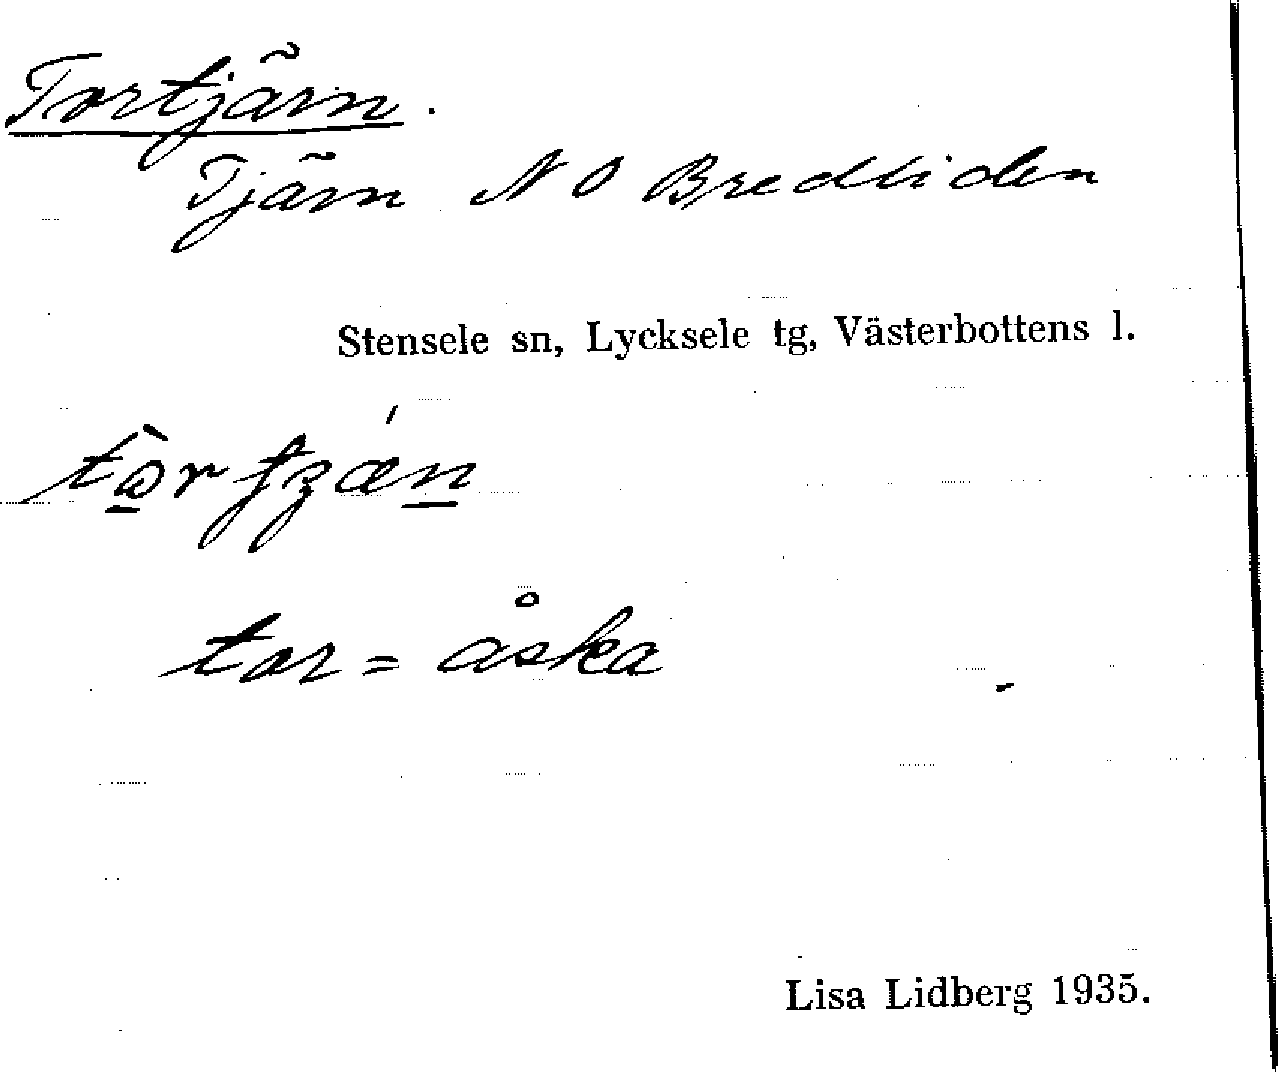 Tortjärn.
Tjärn NO Bredliden
Stensele sn, Lycksele tg, Västerbottens l.
tor = åska
Lisa Lidberg 1935.